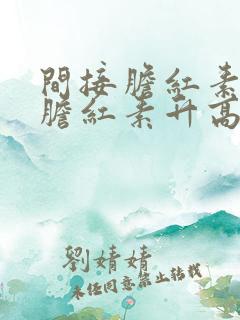 間接膽紅素
膽紅素升高
劉婧婧
未经同意禁止转载